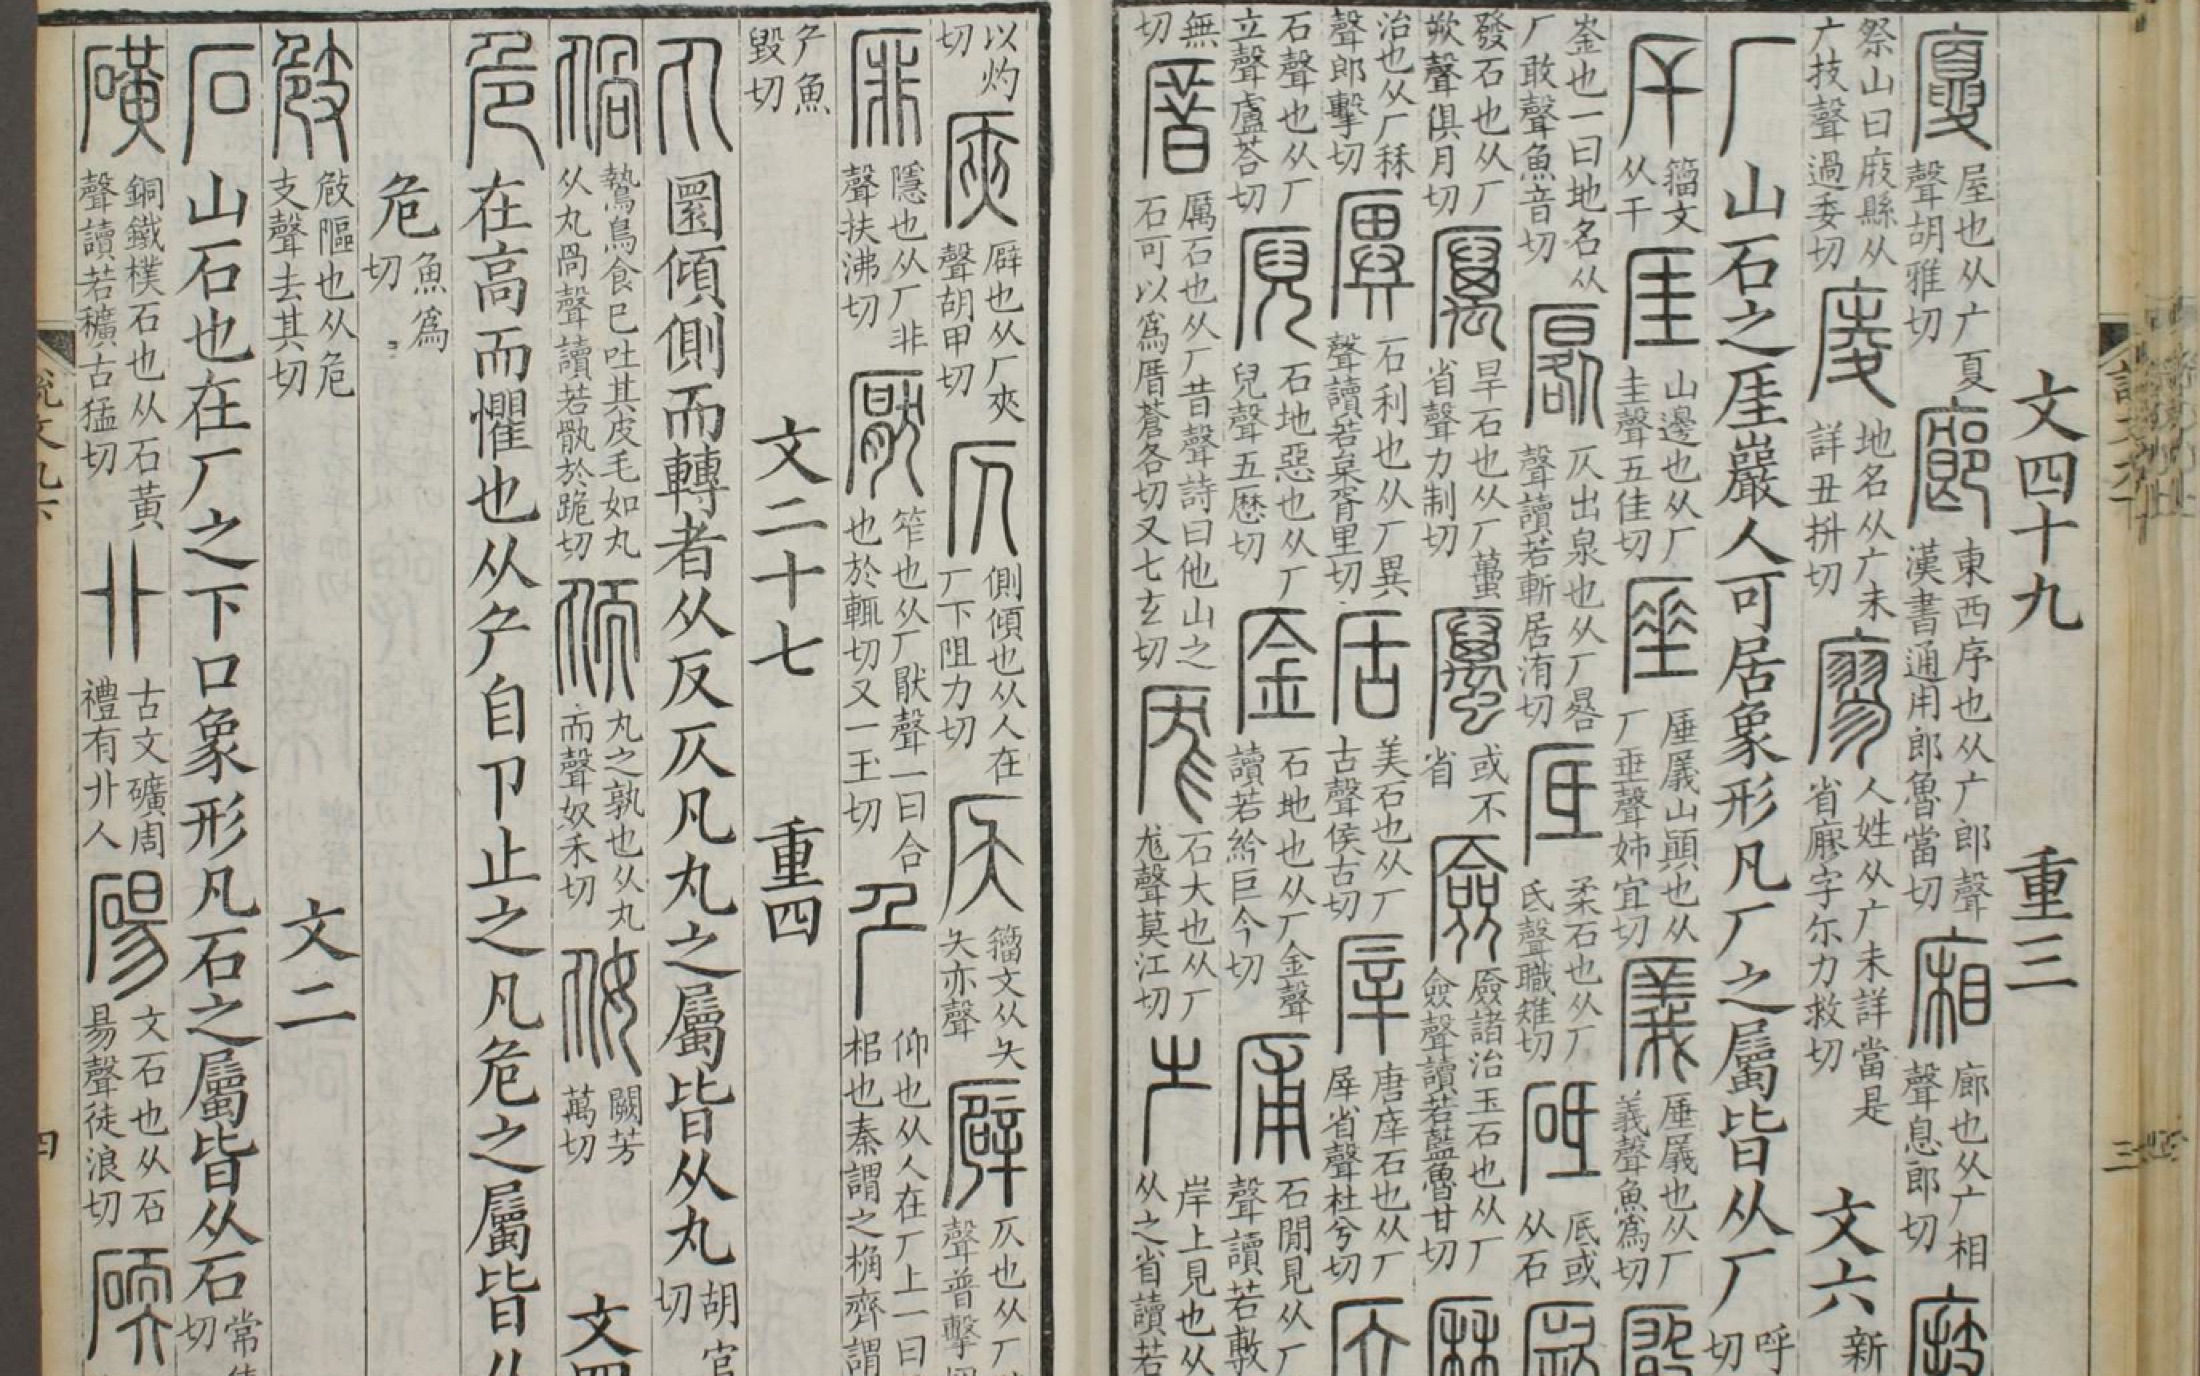 文四十九 重三
廈 屋也从广夏聲胡雅切 廊 東西序也从广郎聲漢書通用郎魯當切 廂 廊也从广相聲息郎切
祭山曰庪縣从广技聲過委切 庱 地名从广未詳丑拼切 廖 人姓从广未詳當是省廫字尓力救切 文六 新
厂 山石之厓巖人可居象形凡厂之屬皆从厂 呼切
厈 籒文从干 厓 山邊也从厂圭聲五佳切 厜 厜㕒山顚也从厂垂聲姊宜切 㕒 厜㕒也从厂義聲魚爲切
崟也一曰地名从厂敢聲魚音切 厬 仄出泉也从厂晷聲讀若斬居洧切 厎 柔石也从厂氐聲職雉切 砥 厎或从石
發石也从厂欮聲俱月切 厲 旱石也从厂蠆省聲力制切 或不省 厱 厱諸治玉石也从厂僉聲讀若藍魯甘切
治也从厂秝聲郎擊切 㕈 石利也从厂異聲讀若枲胥里切 㕆 美石也从厂古聲侯古切 唐厗石也从厂屖省聲杜兮切
石聲也从厂立聲盧荅切 石地惡也从厂兒聲五歴切 石地也从厂金聲讀若紟巨今切 石閒見从厂聲讀若敷
無切 厝 厲石也从厂昔聲詩曰他山之石可以爲厝蒼各切又七玄切 厖 石大也从厂尨聲莫江切 岸上見也从从之省讀若
以灼切 㕍 厞也从厂夾聲胡甲切 仄 側傾也从人在厂下阻力切 籒文从夨夨亦聲 仄也从厂聲普擊切
厞 隱也从厂非聲扶沸切 厭 笮也从厂猒聲一曰合也於輒切又一玉切 仰也从人在厂上一曰桰也秦謂之桷齊謂
产魚毀切 文二十七 重四
丸 圜傾側而轉者从反仄凡丸之屬皆从丸 胡官切
鷙鳥食已吐其皮毛如丸从丸咼聲讀若骩於跪切 丸之孰也从丸而聲奴禾切 闕芳萬切 文四
危 在高而懼也从产自卪止之凡危之屬皆从
危 魚爲切
㩻隁也从危支聲去其切 文二
石 山石也在厂之下口象形凡石之屬皆从石 常切
磺 銅鐵樸石也从石黃聲讀若穬古猛切 古文磺周禮有卝人 碭 文石也从石昜聲徒浪切